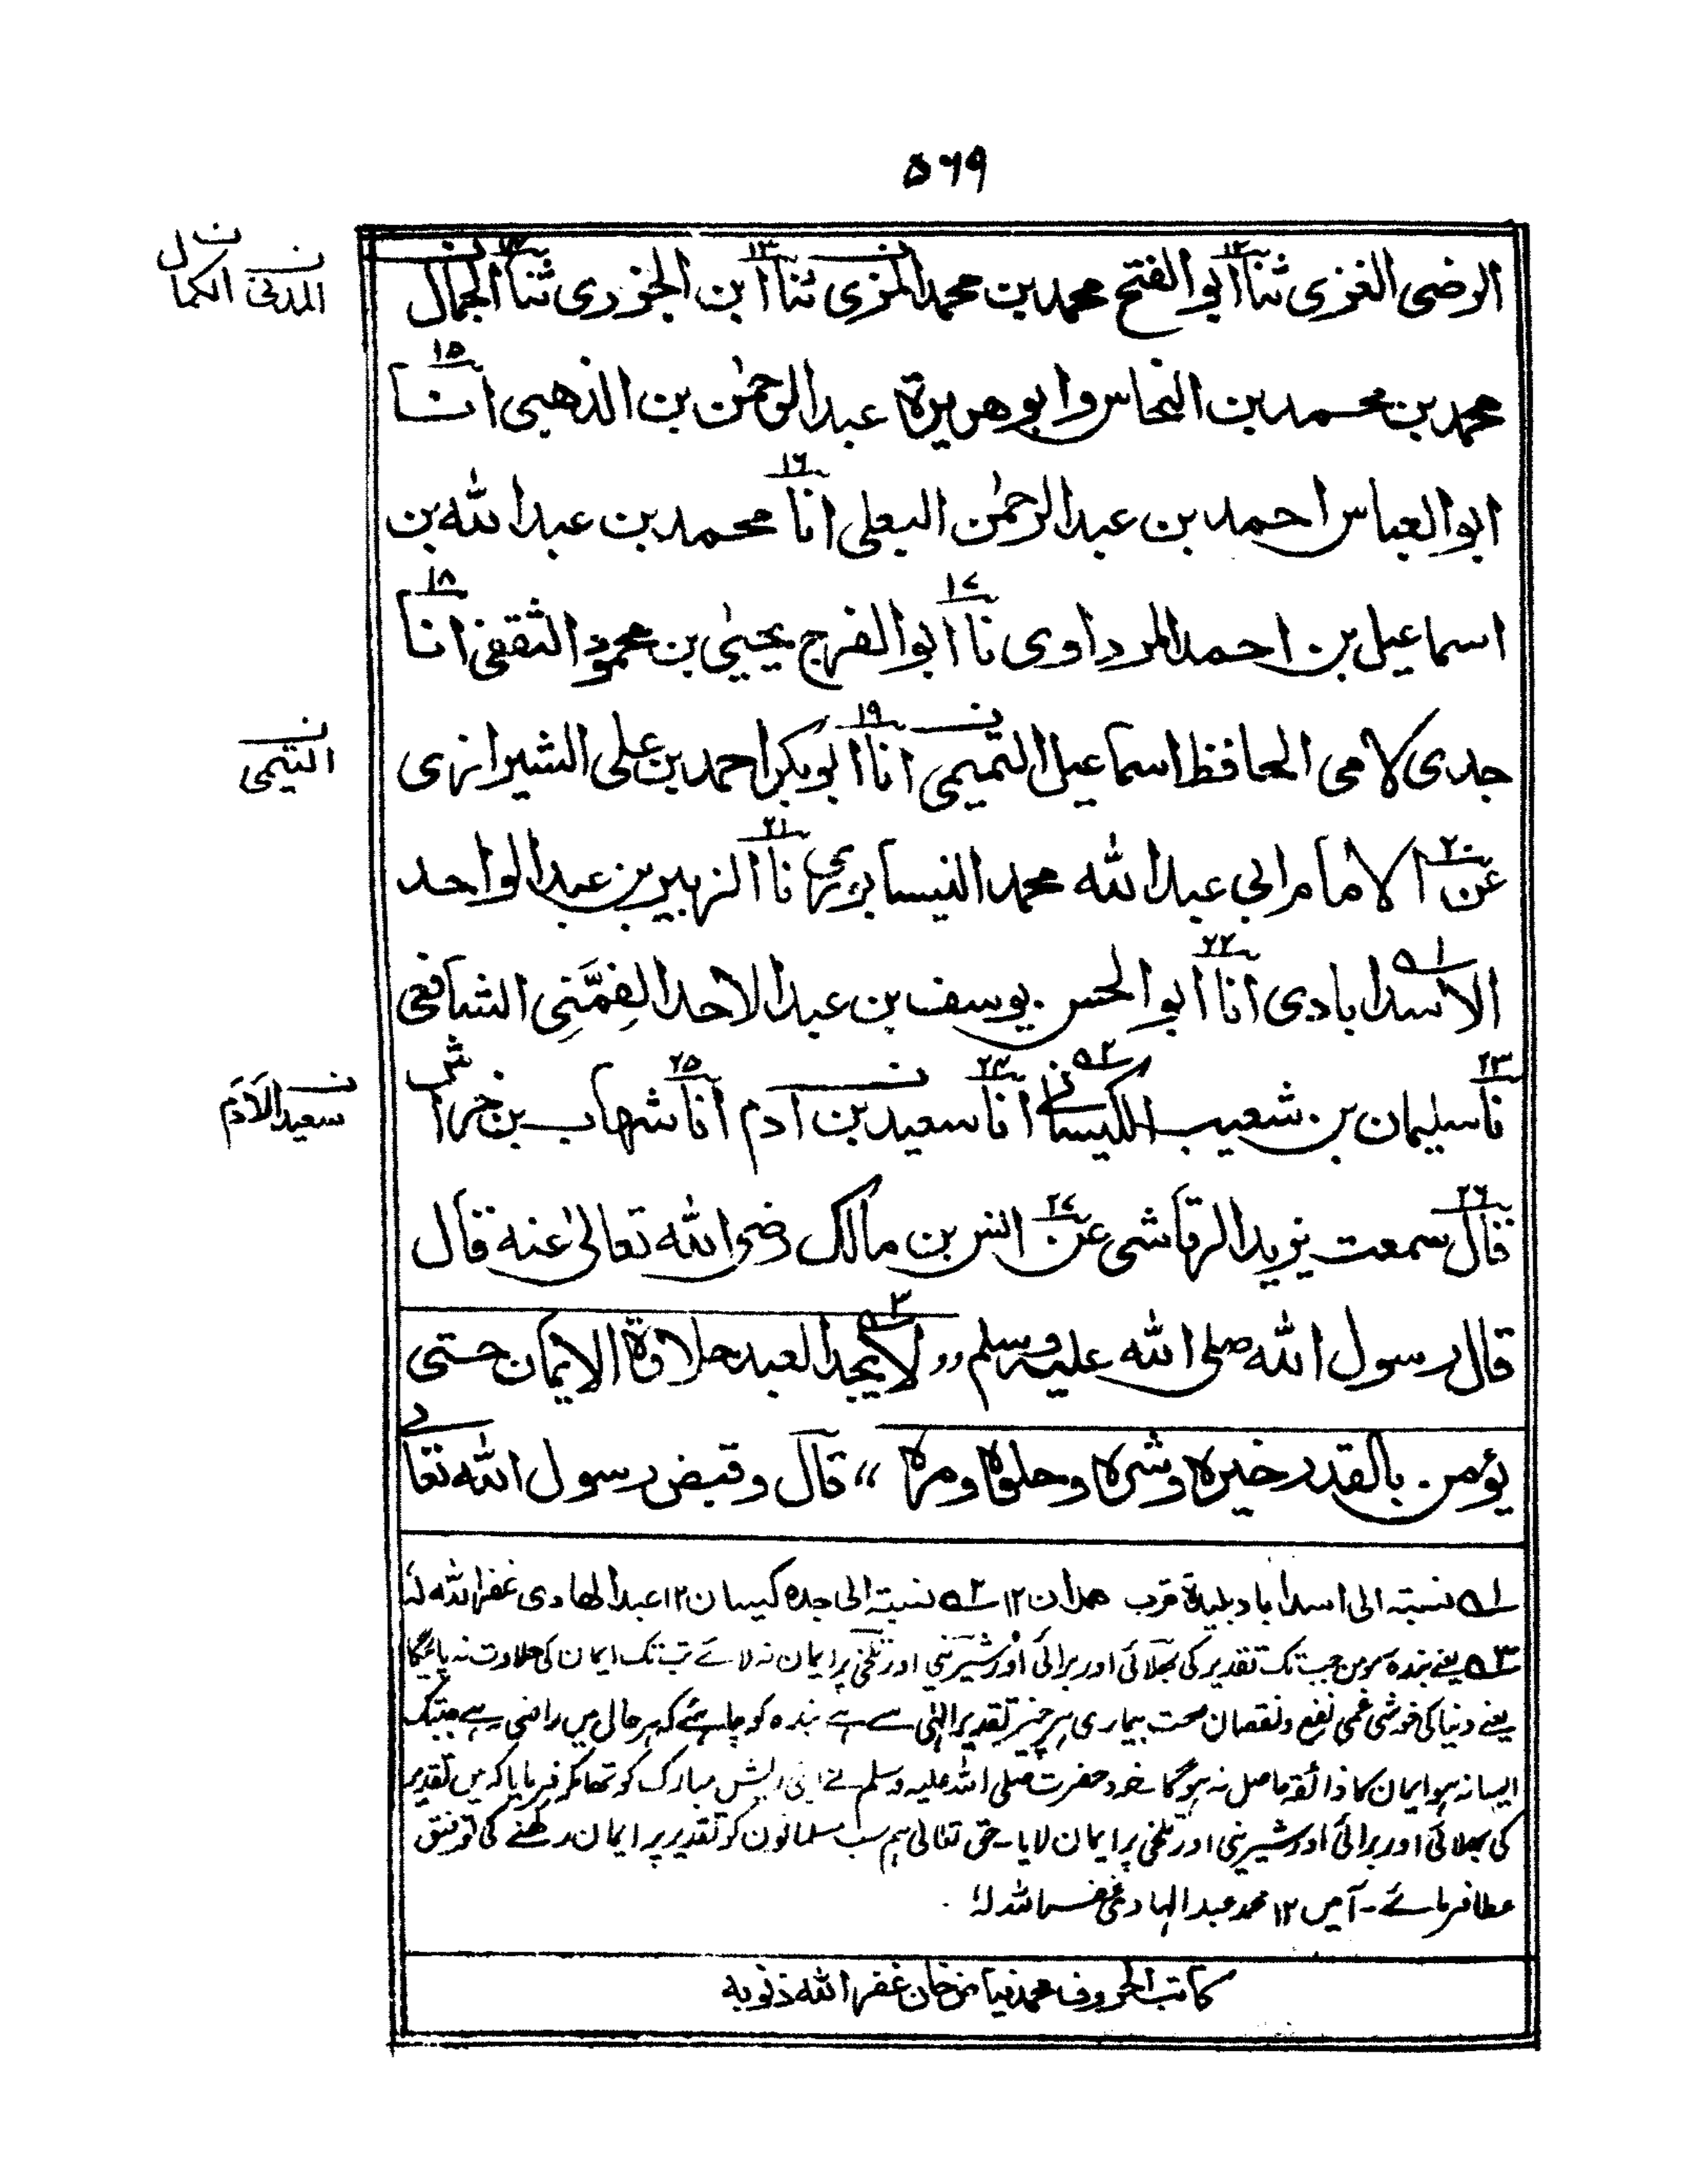 ۵۶۹
الرضی الغزی ثنا ۱۲ ابو الفتح محمد بن محمد المزی ثنا ۱۳ ابن الجزری ثنا الجمال
المدنی الکمال
محمد بن محمد بن النحاس وابو هریرة عبد الرحمٰن بن الذهبی انا ۱۵
ابو العباس احمد بن عبد الرحمٰن البعلی انا ۱۶ محمد بن عبد الله بن
اسماعیل بن احمد المرداوی نا ۱۷ ابو الفرج یحییٰ بن محمود الثقفی انا ۱۸
جدی لامی الحافظ اسماعیل التمیمی انا ۱۹ ابو بکر احمد بن علی الشیرازی
التیمی
عن ۲۰ الامام ابی عبد الله محمد النیسابوری نا ۲۱ الزبیر بن عبد الواحد
الاسدابادی ۱ انا ۲۲ ابو الحسن یوسف بن عبد الاحد القِمَّنِی الشافعی
نا ۲۳ سلیمان بن شعیب الکیسانی ۲ انا ۲۴ سعید بن آدم انا ۲۵ شهاب بن خراش
سعید الآدم
قال ۲۶ سمعت یزید الرقاشی عن ۲۷ انس بن مالک رضی الله تعالیٰ عنه قال
قال رسول الله صلی الله علیه وسلم ,, لا یجد ۳ العبد حلاوة الایمان حتی
یؤمن بالقدر خیره وشره وحلوه ومره ،، قال وقبض رسول الله تعالٰی
۱ نسبة الی اسداباد بلیدة قرب همدان ۱۲ ۲ نسبة الی جده کیسان ۱۲ عبد الهادی غفر الله لہ
۳ یعنے بندہ مومن جب تک تقدیر کی بھلائی اور برائی اور شیرینی اور تلخی پر ایمان نہ لائے تب تک ایمان کی حلاوت نہ پائیگا
یعنے دنیا کی خوشی غمی نفع ونقصان صحت بیماری ہر چیز تقدیر الٰہی سے ہے بندہ کو چاہئے کہ ہر حال میں راضی رہے جبتک
ایسا نہ ہو ایمان کا ذائقہ حاصل نہ ہوگا خود حضرت صلی اللہ علیہ وسلم نے اپنی ریش مبارک کو تھام کر فرمایا کہ میں تقدیر
کی بھلائی اور برائی اور شیرینی اور تلخی پر ایمان لایا ۔ حق تعالی ہم سب مسلمانوں کو تقدیر پر ایمان رکھنے کی توفیق
عطا فرمائے ۔ آمین ۱۲ محمد عبد الہادی غفر اللہ لہٗ
کاتب الحروف محمد نیاز خان غفر الله ذنوبه